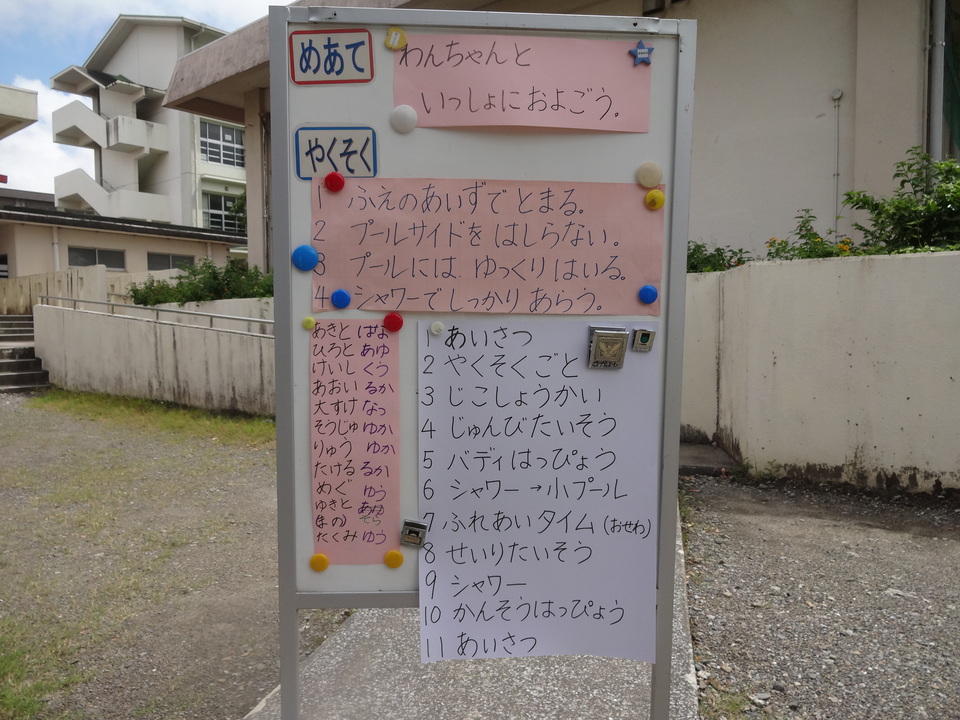 めあて
わんちゃんと
いっしょにおよごう。
やくそく
1 ふえのあいずでとまる。
2 プールサイドをはしらない。
3 プールには ゆっくりはいる。
4 シャワーでしっかりあらう。
あきと はな
ひろと あゆ
けいし くう
あおい るか
大すけ なっ
そうじゅ ゆか
りゅう ゆか
たける るか
めぐ ゆう
ゆきと あゆ
そら
たくみ ゆう
1 あいさつ
2 やくそくごと
3 じこしょうかい
4 じゅんびたいそう
5 バディはっぴょう
6 シャワー→小プール
7 ふれあいタイム(おせわ)
8 せいりたいそう
9 シャワー
10 かんそうはっぴょう
11 あいさつ